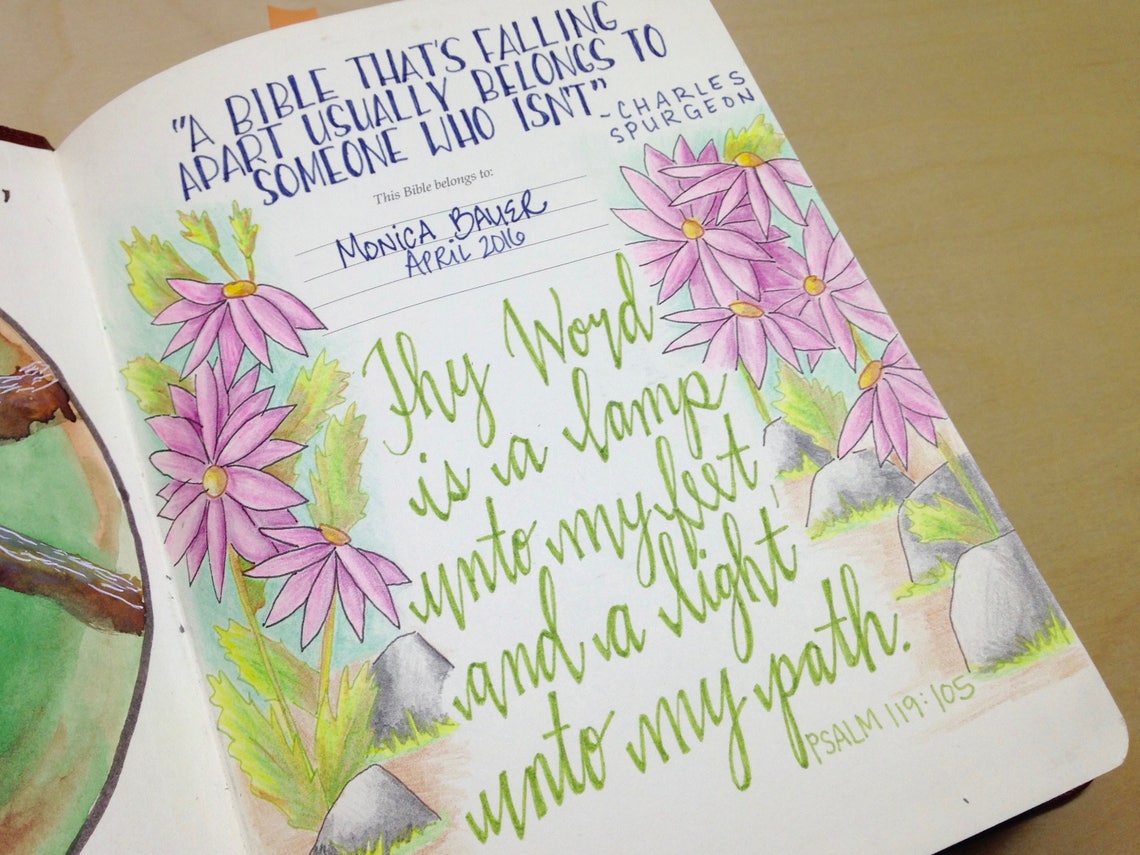 "A BIBLE THAT'S FALLING
APART USUALLY BELONGS TO
SOMEONE WHO ISN'T"
-CHARLES
SPURGEON
This Bible belongs to:
MONICA BAUER
APRIL 2016
Thy Word
is a lamp
unto my feet,
and a light
unto my path.
PSALM 119:105